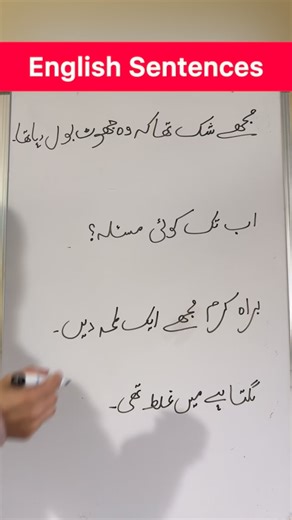 English Sentences
مُجھے شک تھا کہ وہ جھوٹ بول رہا تھا۔
اب تک کوئی مسئلہ؟
براہ کرم مُجھے ایک لمحہ دیں۔
لگتا ہے میں غلط تھی۔